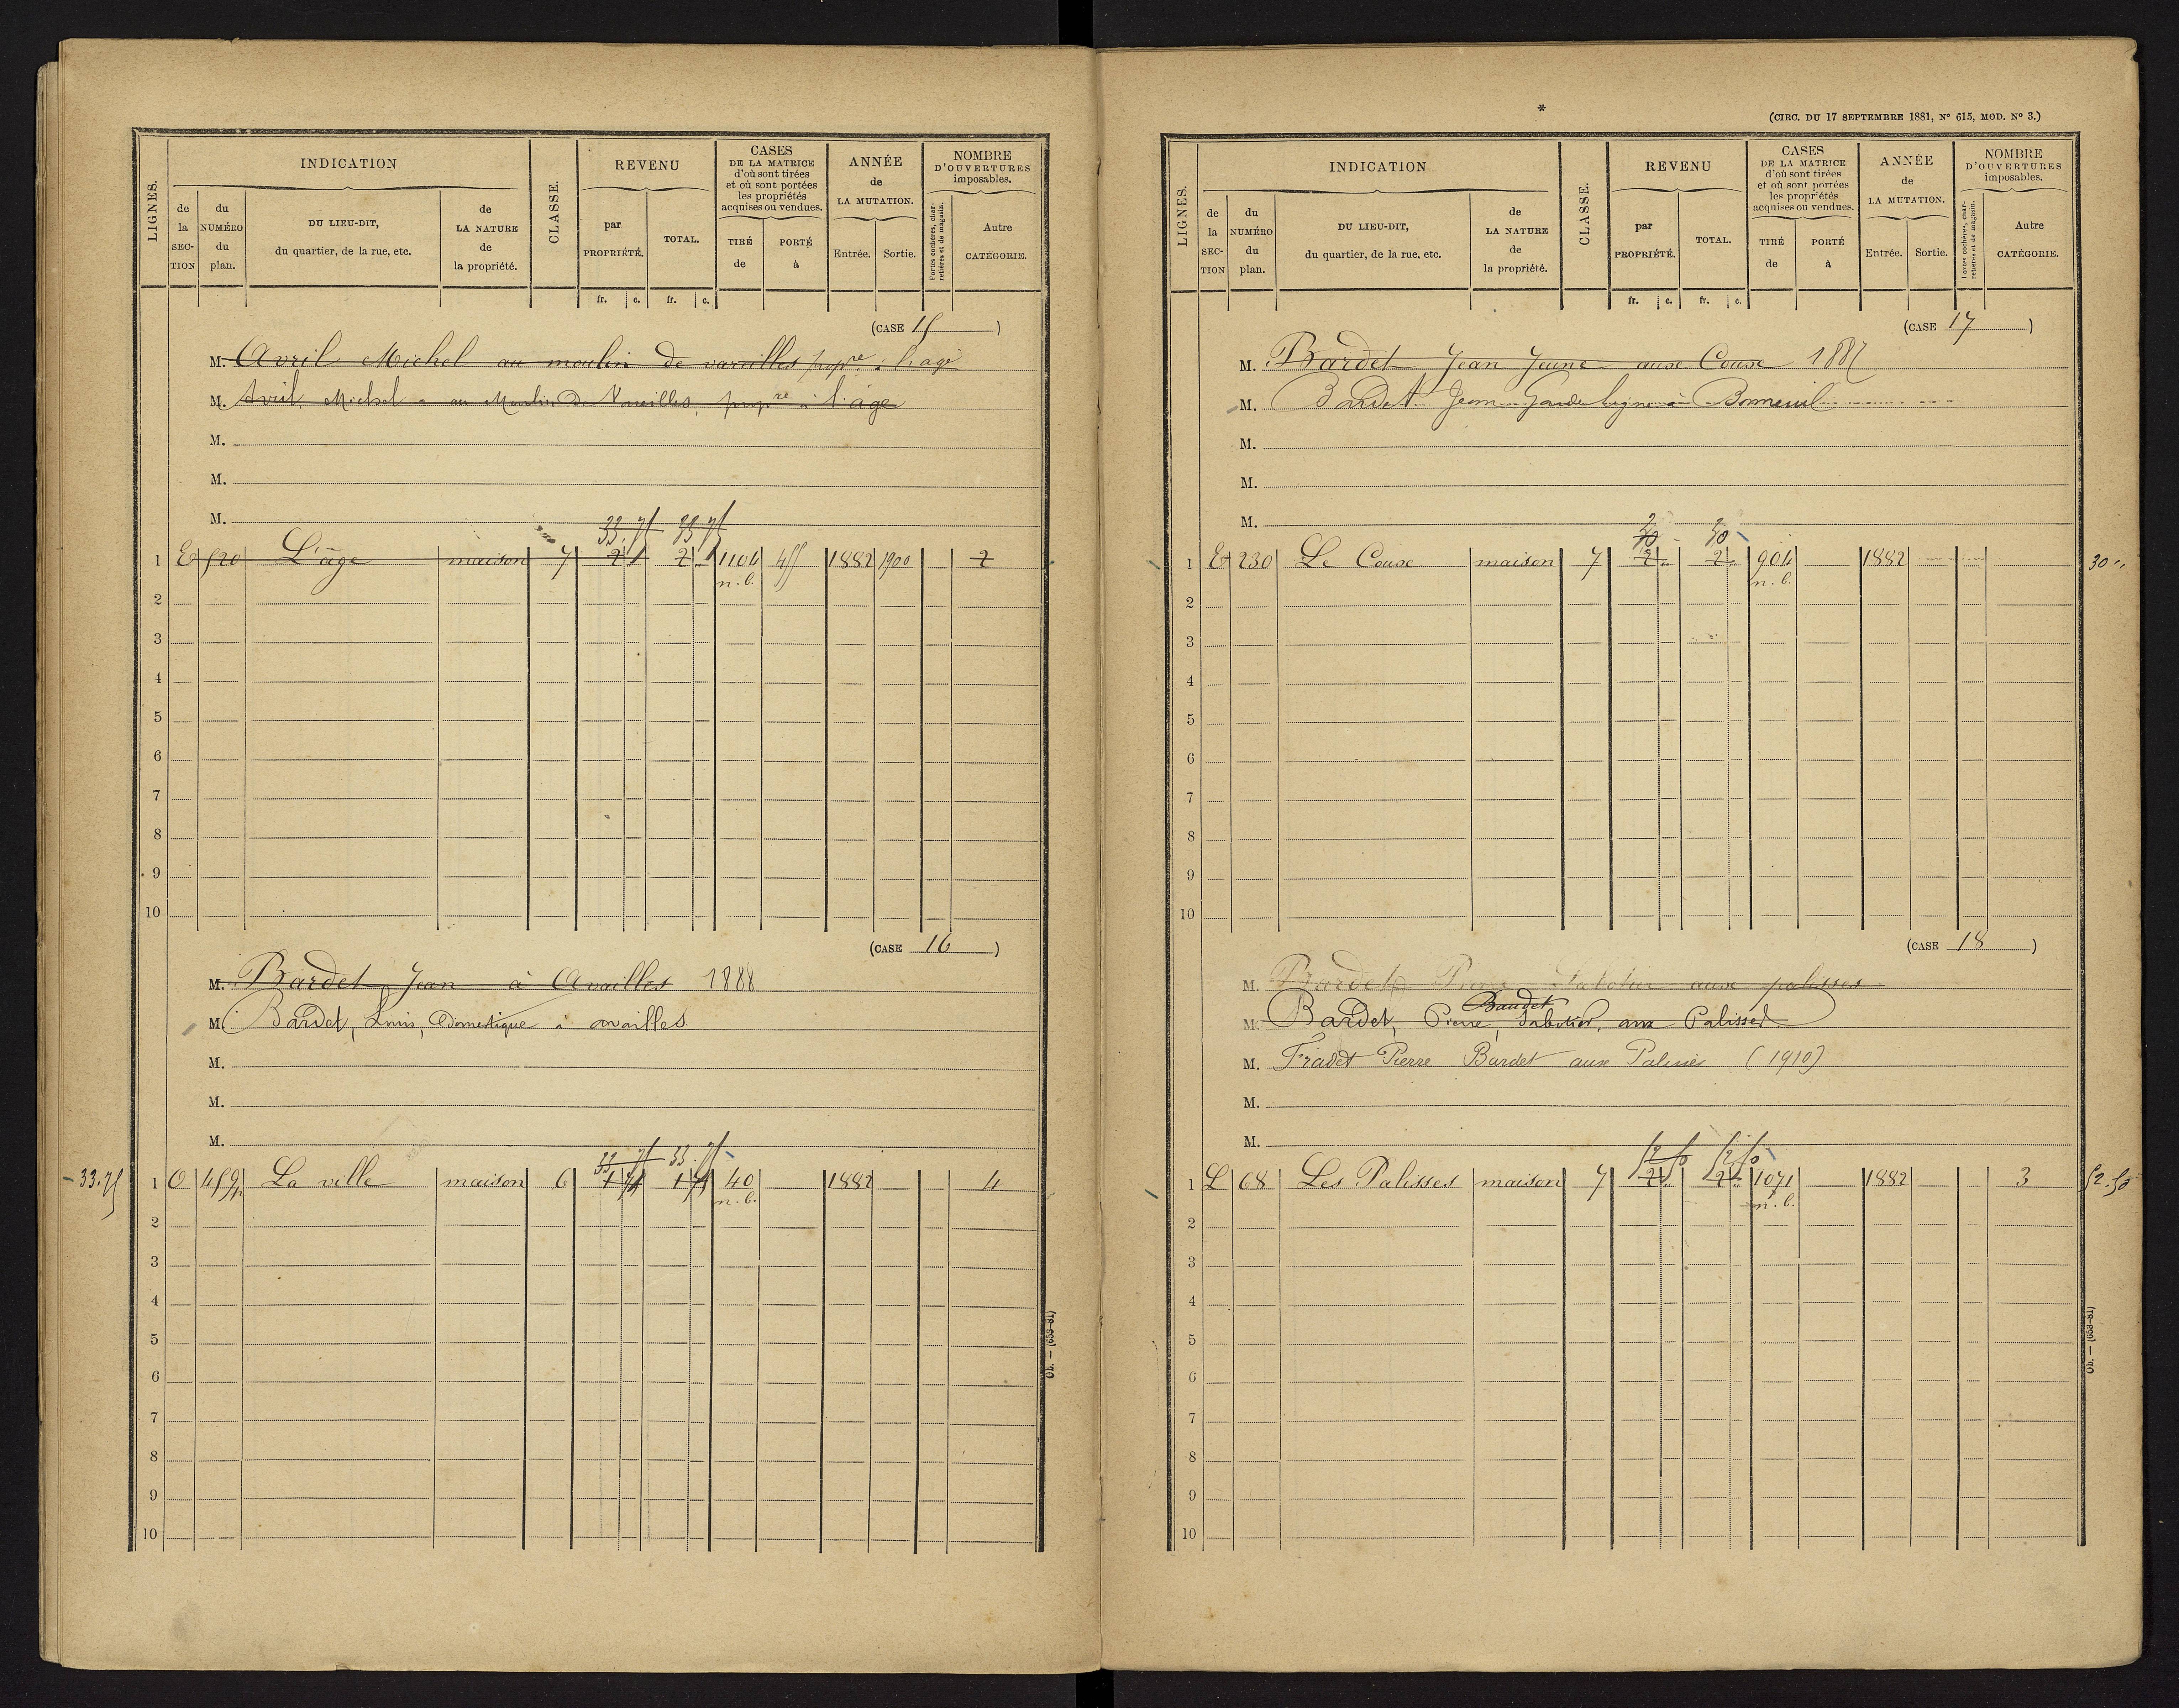 LIGNES.
INDICATION
de la SECTION
du NUMÉRO du plan.
DU LIEU-DIT, du quartier, de la rue, etc.
de LA NATURE de la propriété.
CLASSE.
REVENU
par PROPRIÉTÉ.
TOTAL.
CASES DE LA MATRICE d'où sont tirées et où sont portées les propriétés acquises ou vendues.
TIRÉ de
PORTÉ à
ANNÉE de LA MUTATION.
Entrée.
Sortie.
NOMBRE D'OUVERTURES imposables.
Portes cochères, charretières et de magasin.
Autre CATÉGORIE.
fr. c. fr. c.
(CASE 15)
M. Avril Michel au moulin de vareilles propre à l'age
M. Avril, Michel au Moulin de Vareilles, propre à l'age
M.
M.
M.
33.75 33.75
1 E 520 L'âge maison 7 2 2 1104 455 1882 1900 2
n.b.
2
3
4
5
6
7
8
9
10
(CASE 16)
M. Bardet Jean à Availles 1888
M. Bardet, Louis, Domestique à availles
M.
M.
M.
33.75 33.75
33.75 1 O 459 La ville maison 6 40 1882 4
n.b.
2
3
4
5
6
7
8
9
10
Ob. — (633-81)
*
(CIRC. DU 17 SEPTEMBRE 1881, N° 615, MOD. N° 3.)
LIGNES.
INDICATION
de la SECTION
du NUMÉRO du plan.
DU LIEU-DIT, du quartier, de la rue, etc.
de LA NATURE de la propriété.
CLASSE.
REVENU
par PROPRIÉTÉ.
TOTAL.
CASES DE LA MATRICE d'où sont tirées et où sont portées les propriétés acquises ou vendues.
TIRÉ de
PORTÉ à
ANNÉE de LA MUTATION.
Entrée.
Sortie.
NOMBRE D'OUVERTURES imposables.
Portes cochères, charretières et de magasin.
Autre CATÉGORIE.
fr. c. fr. c.
(CASE 17)
M. Bardet Jean Jeune aux Couse 1887
M. Bardet Jean Garde ligne à Bonneuil
M.
M.
M.
1 E 230 Le Couse maison 7 2 2 904 1882 30 "
n.b.
2
3
4
5
6
7
8
9
10
(CASE 18)
M. Bardet Pierre Sabotier aux palisses
Baudet
M. Bardet, Pierre, Sabotier, aux Palisses
M. Fradet Pierre Bardet aux Palisses (1910)
M.
M.
52.50 52.50
1 L 68 Les Palisses maison 7 2 2 1071 1882 3 52.50
n.b.
2
3
4
5
6
7
8
9
10
Ob. — (633-81)